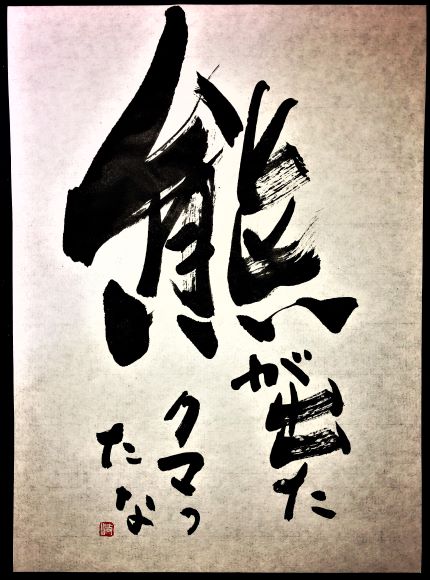 熊
が出た
クマっ
たな